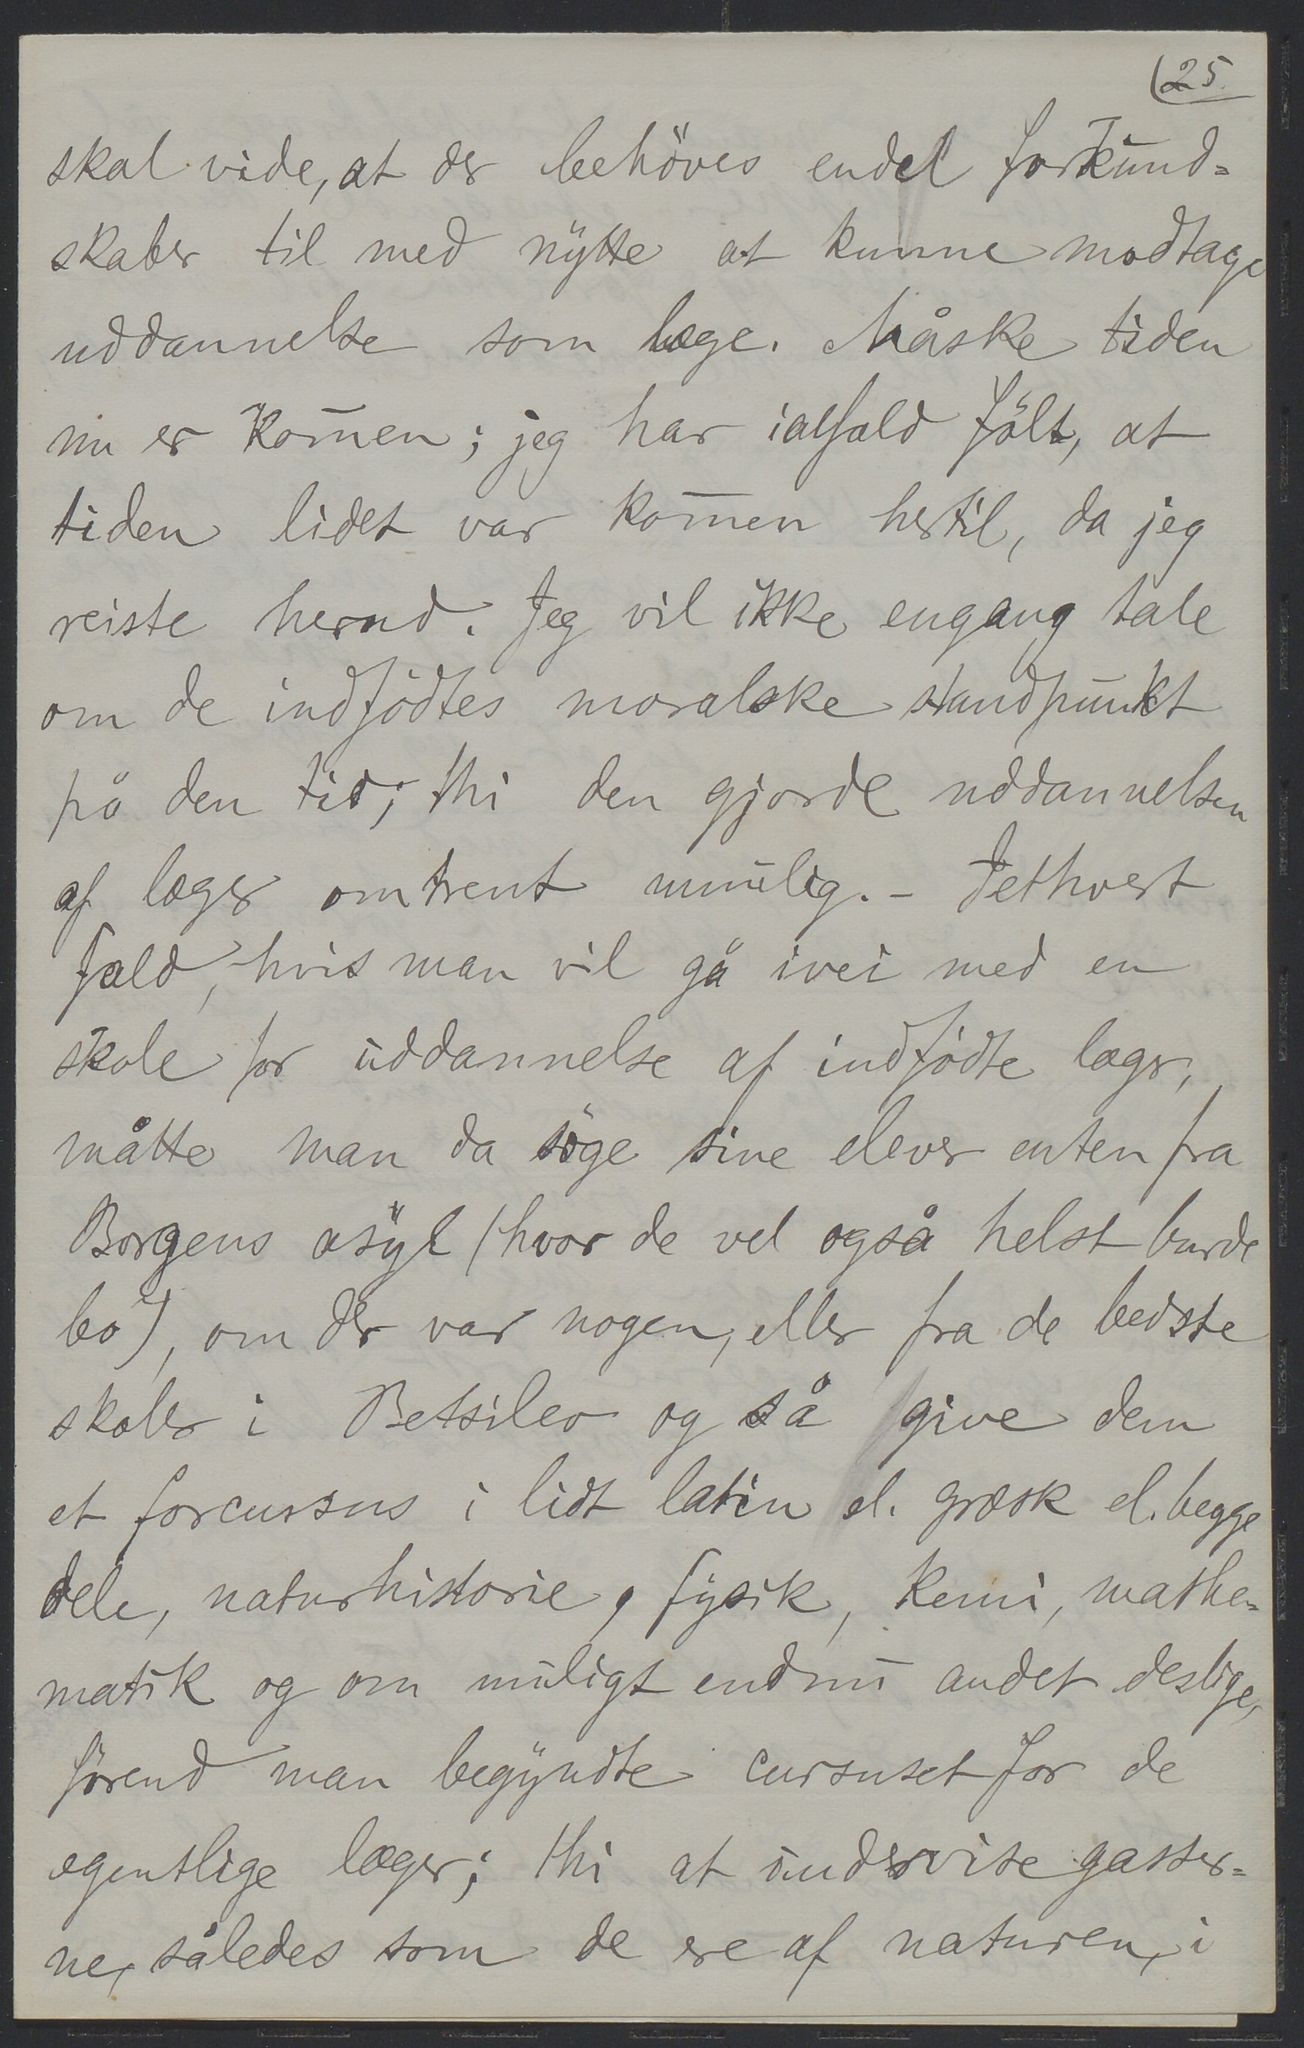 (25.
skal vide, at der behöves endel forkund=
skaber til med nytte at kunne modtage
uddannelse som læge. Måske tiden
nu er kom̄en; jeg har ialfald fölt, at
tiden lidet var kom̄en hertil, da jeg
reiste herud. Jeg vil ikke engang tale
om de indfödtes moralske standpunkt
på den tid; thi den gjorde uddannelsen
af læger omtrent umulig. – Iethvert
fald, hvis man vil gå ivei med en
skole for uddannelse af indfödte læger,
måtte man da söge sine elever enten fra
Borgens asyl (hvor de vel også helst burde
bo), om der var nogen, eller fra de bedste
skoler i Betsileo og så give dem
et forcursus i lidt latin el. græsk el. begge
dele, naturhistorie, fysik, kemi, mathe=
matik og om muligt endnu andet deslige,
förend man begyndte cursuset for de
egentlige læger; thi at undervise gasser=
ne, således som de ere af naturen, i